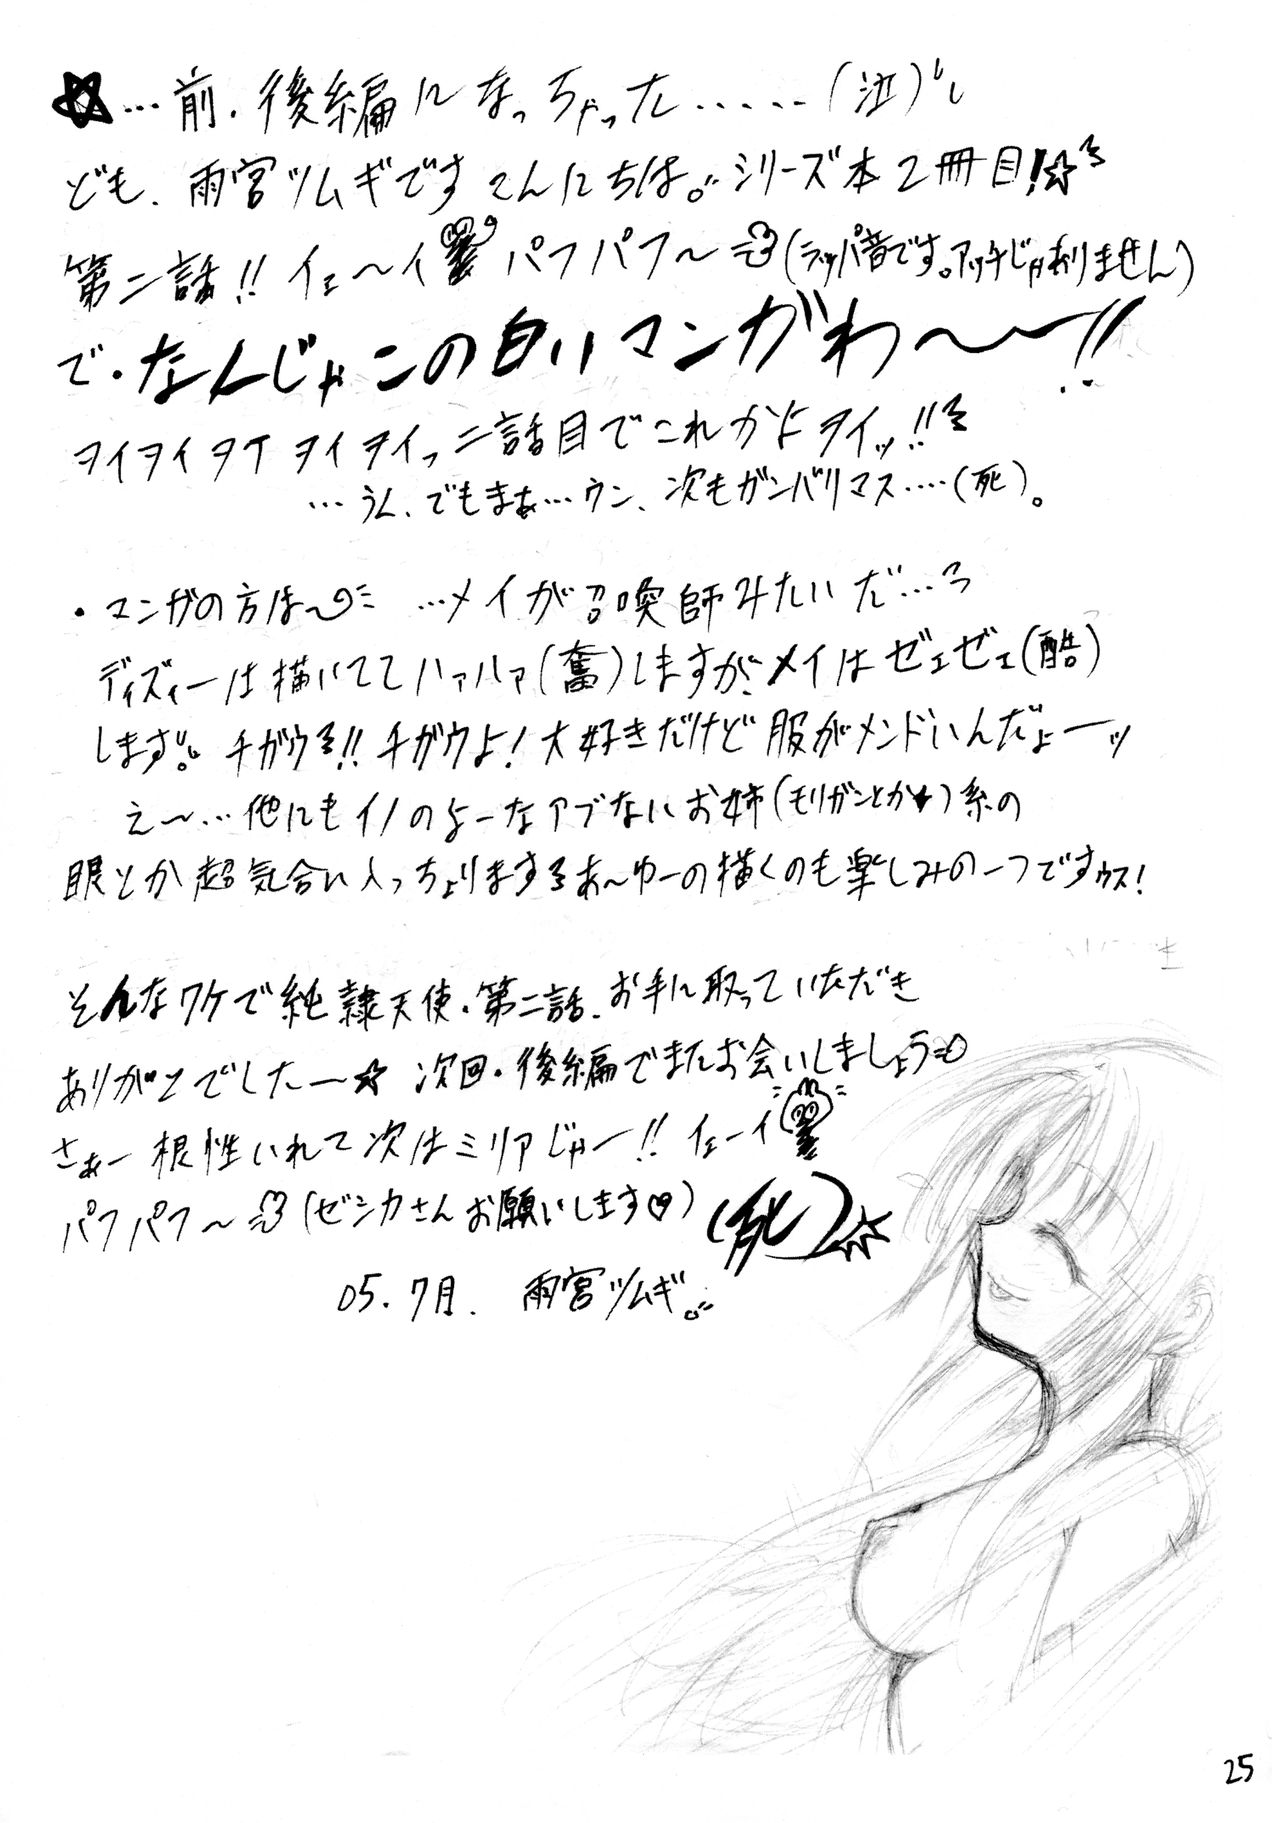 ☆…前、後編になっちゃった……(泣)
ども、雨宮ツムギです こんにちは。シリーズ本2冊目!☆
第二話!! イェ～イ パフパフ～(ラッパ音です。アッチじゃありません)
で・なんじゃこの白いマンガわ～～!!
ヲイヲイヲイヲイヲイっ二話目でこれかよヲイッ!!
…うん、でもまぁ…ウン、次もガンバリマス….(死)。
・マンガの方は～ …メイが召喚師みたいだ…
ディズィーは描いててハァハァ(奮)しますが、メイはゼェゼェ(酷)
します。チガウ!!チガウよ!大好きだけど服がメンドいんだよーッ
え～…他にもイノのよーなアブないお姉(モリガンとか★)系の
眼とか超気合い入っちょりまする あ～ゆーの描くのも楽しみの一つですゥス!
そんなワケで純隷天使・第二話、お手に取っていただき
ありがとでしたー☆ 次回・後編でまたお会いしましょう
さぁー根性いれて次はミリアじゃー!! イェーイ
パフパフ～(ゼシカさんお願いします♡)(死)
05.7月. 雨宮ツムギ。
25